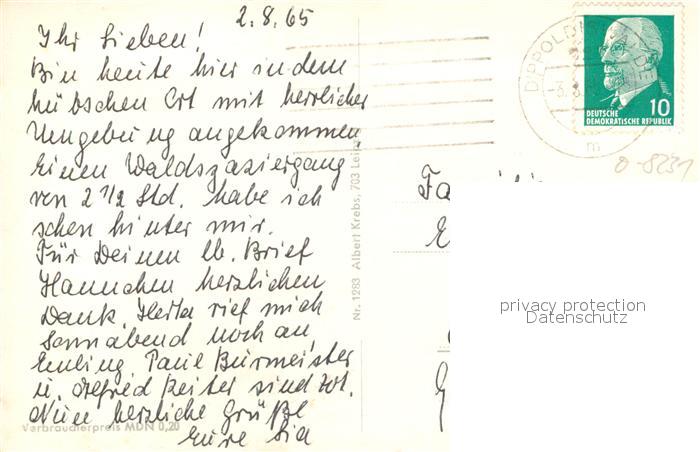 2.8.65
Ihr Lieben!
Bin heute hier in dem
hübschen Ort mit herrlicher
Umgebung angekommen
Einen Waldspaziergang
von 2 1/2 Std. habe ich
schon hinter mir.
Für Deinen lb. Brief
Hannchen herzlichen
Dank, Herta rief mich
Sonnabend noch an,
Paul Burmeister
u. Alfred Reiter sind tot.
Nun herzliche Grüße
Eure
Verbraucherpreis MDN 0,20
Nr. 1283 Albert Krebs, 703 Leipz
DEUTSCHE
DEMOKRATISCHE REPUBLIK
10
m
o-8231
Fa
privacy protection
Datenschutz